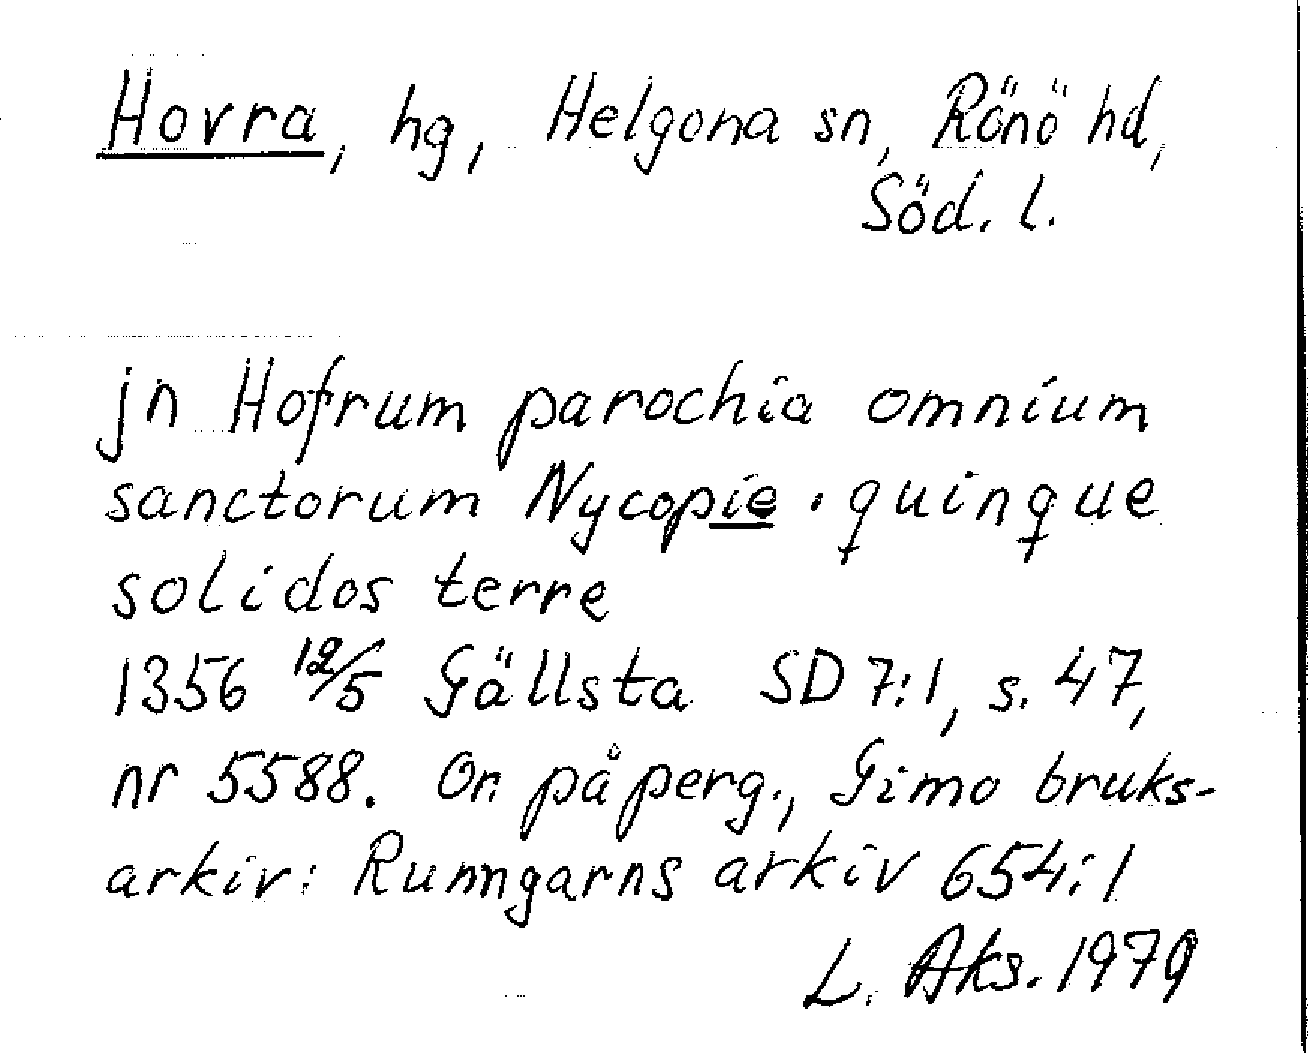 Hovra, hg, Helgona sn, Rönö hd,
Söd. l.
jn Hofrum parochia omnium
sanctorum Nycopie · quinque
solidos terre
1356 12/5 Gällsta SD 7:1, s. 47,
nr 5588. Or. på perg., Gimo bruks-
arkiv: Runngarns arkiv 654:1
L. Aks. 1979